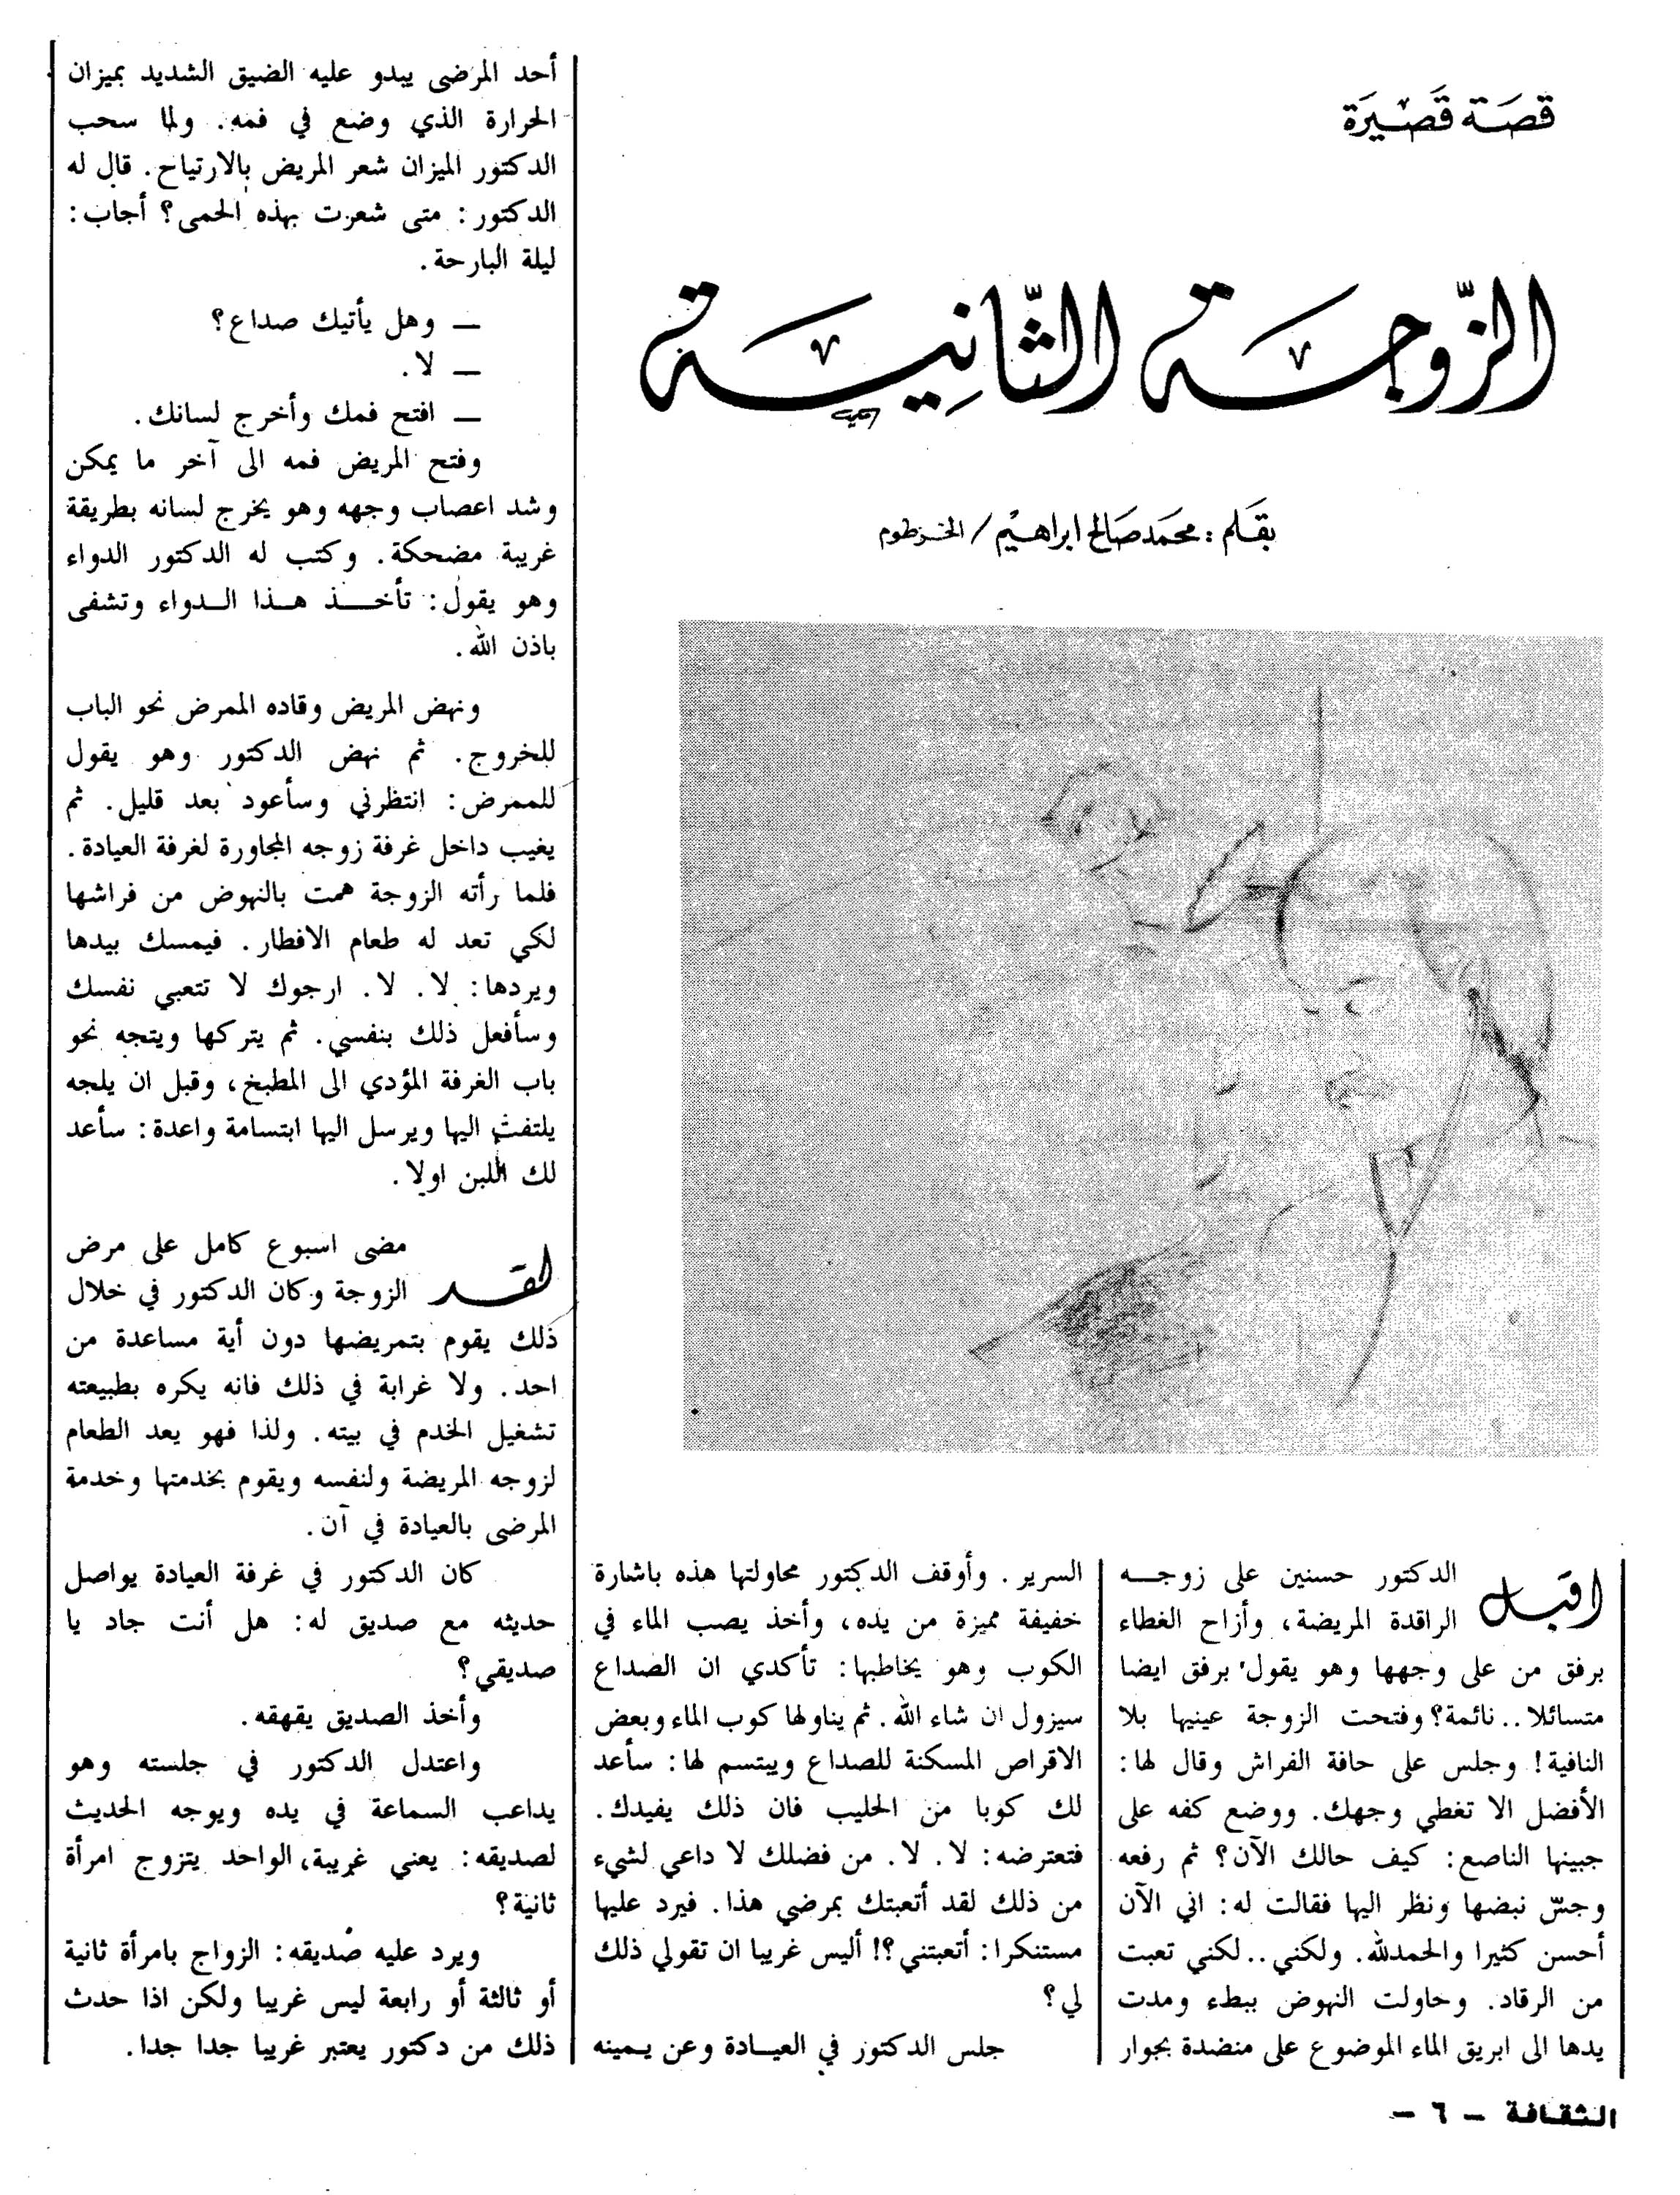 قصة قصيرة
الزوجة الثانية
بقلم : محمد صالح ابراهيم / الخرطوم
اقبل الدكتور حسنين على زوجه
الراقدة المريضة، وأزاح الغطاء
برفق من على وجهها وهو يقول برفق ايضا
متسائلا.. نائمة؟ وفتحت الزوجة عينيها بلا
النافية! وجلس على حافة الفراش وقال لها:
الأفضل الا تغطي وجهك. ووضع كفه على
جبينها الناصع: كيف حالك الآن؟ ثم رفعه
وجسّ نبضها ونظر اليها فقالت له: اني الآن
أحسن كثيرا والحمدلله. ولكني.. لكني تعبت
من الرقاد. وحاولت النهوض ببطء ومدت
يدها الى ابريق الماء الموضوع على منضدة بجوار
السرير. وأوقف الدكتور محاولتها هذه باشارة
خفيفة مميزة من يده، وأخذ يصب الماء في
الكوب وهو يخاطبها: تأكدي ان الصداع
سيزول ان شاء الله. ثم يناولها كوب الماء وبعض
الاقراص المسكنة للصداع ويبتسم لها: سأعد
لك كوبا من الحليب فان ذلك يفيدك.
فتعترضه: لا. لا. من فضلك لا داعي لشيء
من ذلك لقد أتعبتك بمرضي هذا. فيرد عليها
مستنكرا: أتعبتني؟! أليس غريبا ان تقولي ذلك
لي؟
جلس الدكتور في العيادة وعن يمينه
أحد المرضى يبدو عليه الضيق الشديد بميزان
الحرارة الذي وضع في فمه. ولما سحب
الدكتور الميزان شعر المريض بالارتياح. قال له
الدكتور: متى شعرت بهذه الحمى؟ أجاب:
ليلة البارحة.
— وهل يأتيك صداع؟
— لا.
— افتح فمك وأخرج لسانك.
وفتح المريض فمه الى آخر ما يمكن
وشد اعصاب وجهه وهو يخرج لسانه بطريقة
غريبة مضحكة. وكتب له الدكتور الدواء
وهو يقول: تأخذ هذا الدواء وتشفى
باذن الله.
ونهض المريض وقاده الممرض نحو الباب
للخروج. ثم نهض الدكتور وهو يقول
للممرض: انتظرني وسأعود بعد قليل. ثم
يغيب داخل غرفة زوجه المجاورة لغرفة العيادة.
فلما رأته الزوجة همت بالنهوض من فراشها
لكي تعد له طعام الافطار. فيمسك بيدها
ويردها: لا. لا. ارجوك لا تتعبي نفسك
وسأفعل ذلك بنفسي. ثم يتركها ويتجه نحو
باب الغرفة المؤدي الى المطبخ، وقبل ان يلجه
يلتفت اليها ويرسل اليها ابتسامة واعدة: سأعد
لك اللبن اولا.
لقد مضى اسبوع كامل على مرض
الزوجة وكان الدكتور في خلال
ذلك يقوم بتمريضها دون أية مساعدة من
احد. ولا غرابة في ذلك فانه يكره بطبيعته
تشغيل الخدم في بيته. ولذا فهو يعد الطعام
لزوجه المريضة ولنفسه ويقوم بخدمتها وخدمة
المرضى بالعيادة في آن.
كان الدكتور في غرفة العيادة يواصل
حديثه مع صديق له: هل أنت جاد يا
صديقي؟
وأخذ الصديق يقهقه.
واعتدل الدكتور في جلسته وهو
يداعب السماعة في يده ويوجه الحديث
لصديقه: يعني غريبة، الواحد يتزوج امرأة
ثانية؟
ويرد عليه صديقه: الزواج بامرأة ثانية
أو ثالثة أو رابعة ليس غريبا ولكن اذا حدث
ذلك من دكتور يعتبر غريبا جدا جدا.
الثقافة - ٦ -